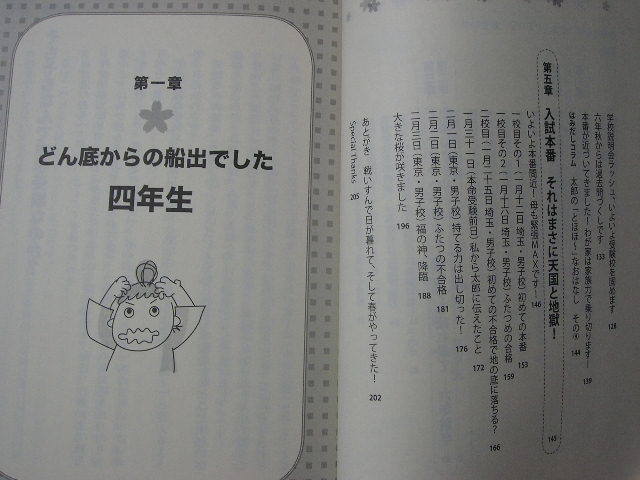 学校説明会ラッシュ、いよいよ受験校を固めます 128
六年秋からは過去問づくしです 133
本番が近づいてきました！わが家は家族力で乗り切ります！ 139
はみだしコラム 太郎の「とほほ〜」なおはなし その④ 144
第五章 入試本番 それはまさに天国と地獄！ 145
いよいよ本番間近！母も緊張MAXです！ 146
一校目その1（一月十二日 埼玉・男子校）初めての本番 153
一校目その2（一月十六日 埼玉・男子校）ふたつめの合格 159
二校目（一月二十五日 埼玉・男子校）初めての不合格で地の底に落ちる？ 166
一月三十一日（本命受験前日）私から太郎に伝えたこと 172
二月一日（東京・男子校）持てる力は出し切った！ 176
二月二日（東京・男子校）ふたつの不合格 181
二月三日（東京・男子校）福の神、降臨 188
大きな桜が咲きました 196
あとがき 戦いすんで日が暮れて、そして春がやってきた！ 202
Special Thanks 205
第一章
どん底からの船出でした
四年生